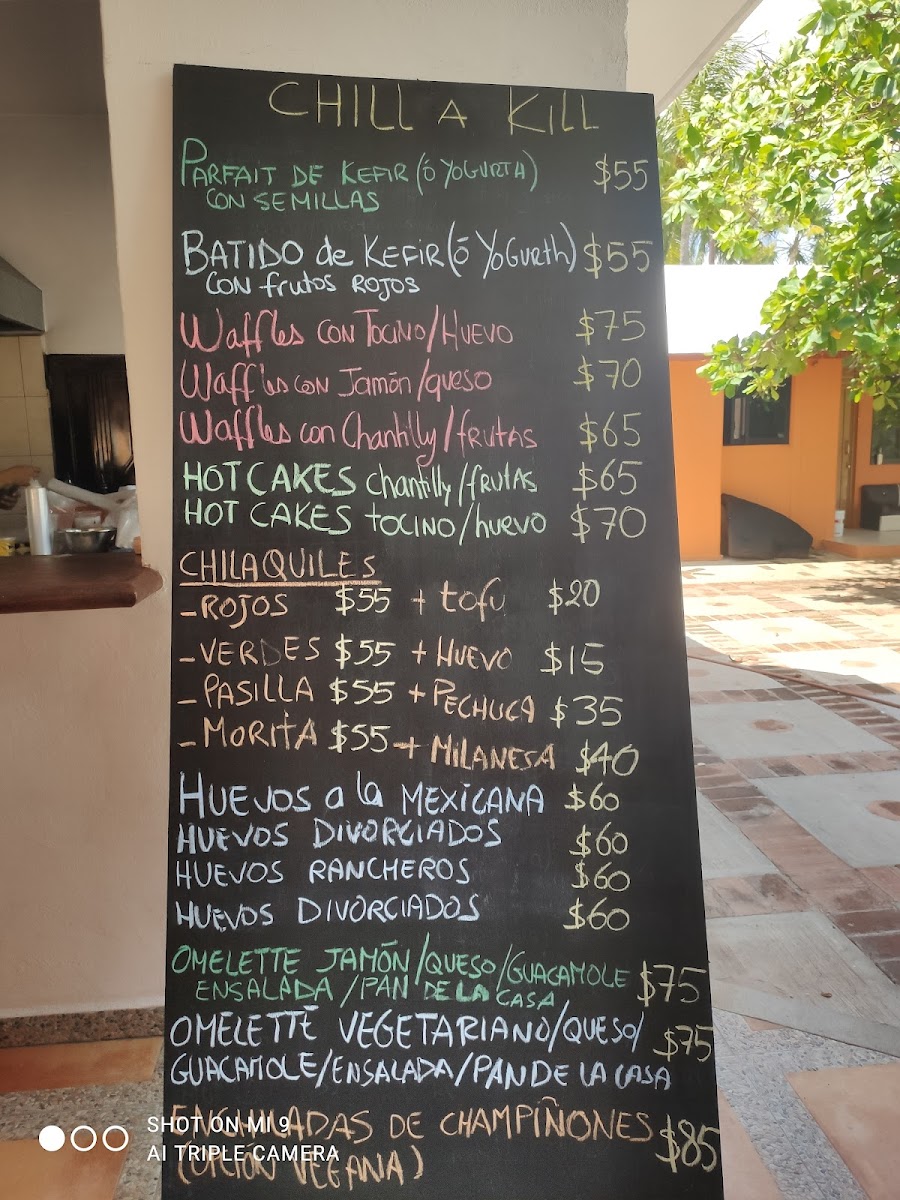 CHILL A KILL
PARFAIT DE KEFIR (ó YOGURTH) $55
CON SEMILLAS
BATIDO de KEFIR (ó YOGURTH) $55
CON frutos ROJOS
Waffles con Tocino/Huevo $75
Waffles con Jamón/queso $70
Waffles con Chantilly/frutas $65
HOT CAKES chantilly/frutas $65
HOT CAKES tocino/huevo $70
CHILAQUILES
- ROJOS $55 + tofu $20
- VERDES $55 + HUEVO $15
- PASILLA $55 + PECHUGA $35
- MORITA $55 + MILANESA $40
HUEVOS a la MEXICANA $60
HUEVOS DIVORCIADOS $60
HUEVOS RANCHEROS $60
HUEVOS DIVORCIADOS $60
OMELETTE JAMÓN/QUESO/GUACAMOLE $75
ENSALADA/PAN DE LA CASA
OMELETTE VEGETARIANO/QUESO/ $75
GUACAMOLE/ENSALADA/PAN DE LA CASA
DE CHAMPIÑONES $85
(OPCIÓN VEGANA)
SHOT ON MI 9
AI TRIPLE CAMERA